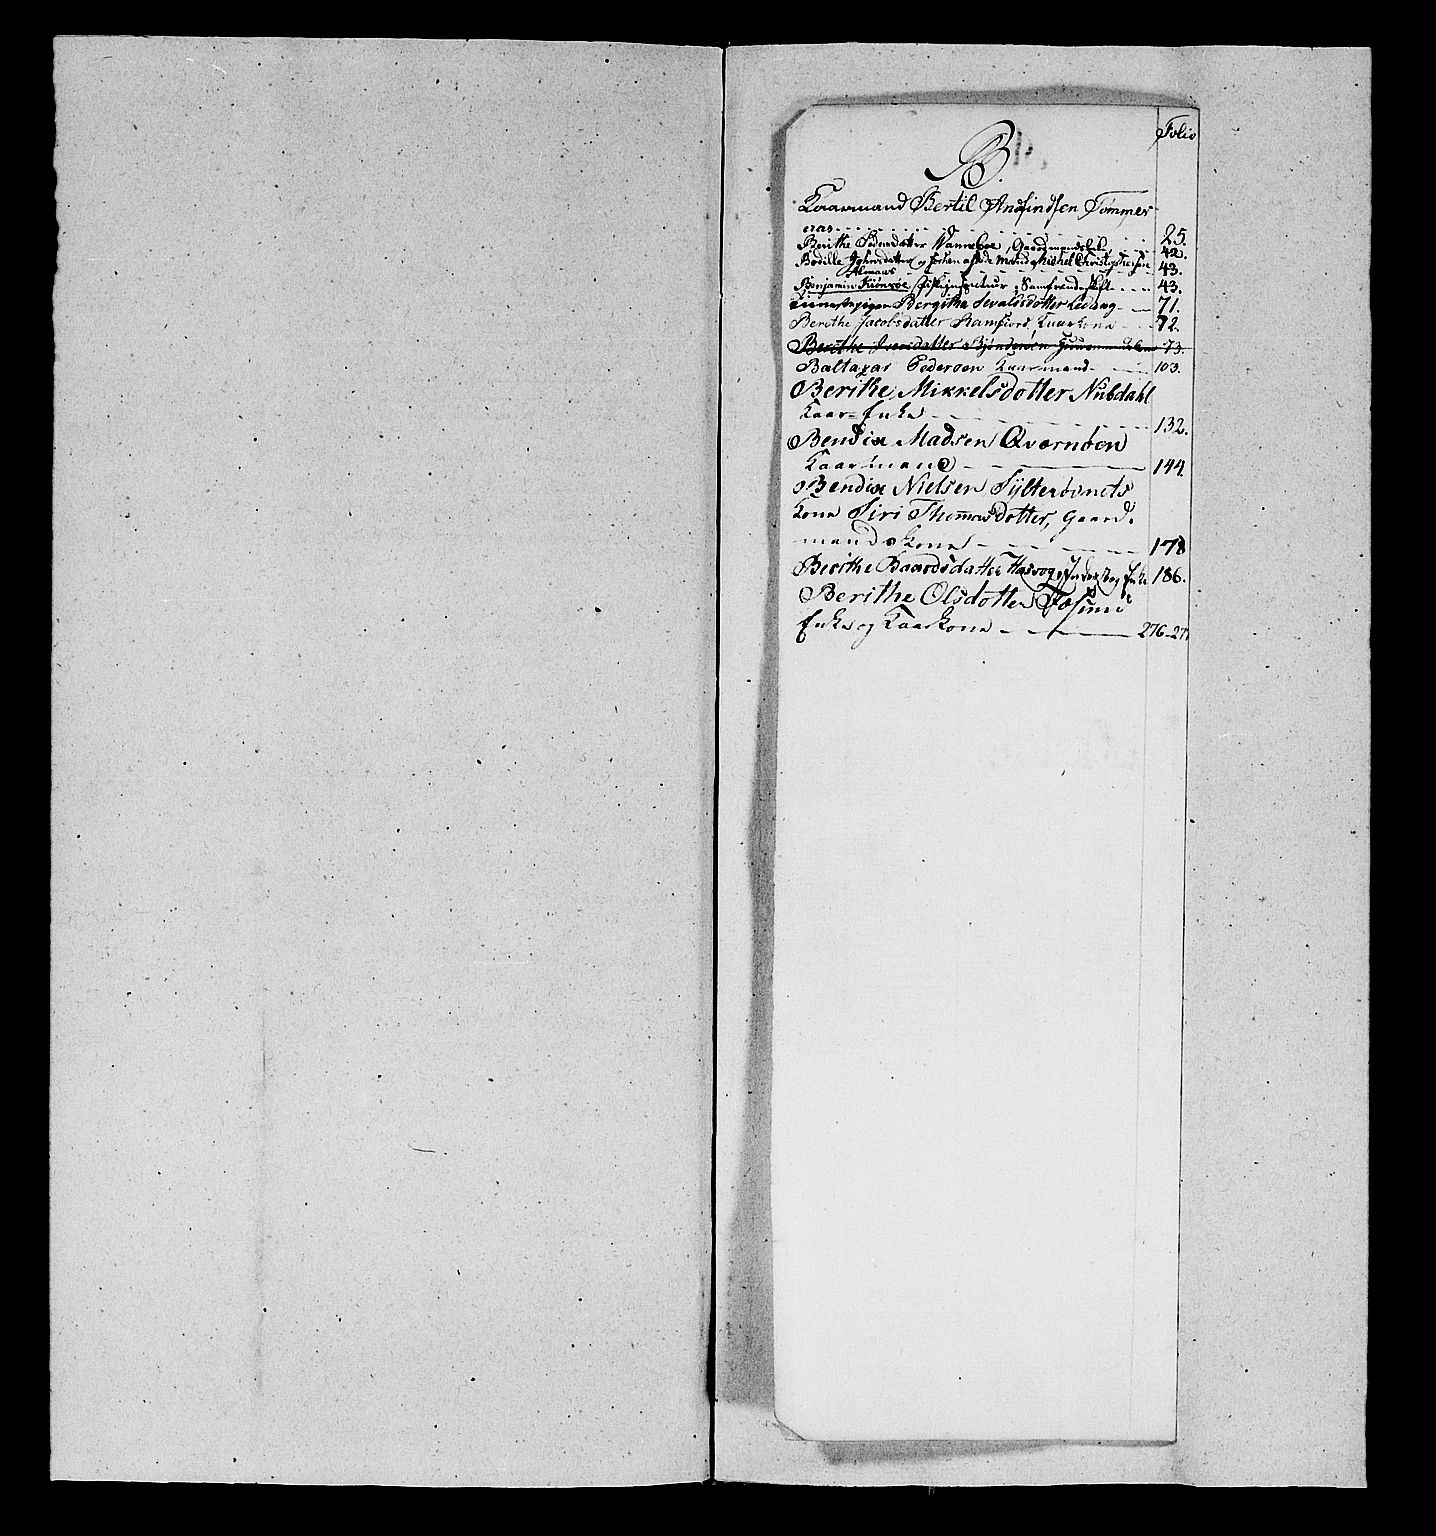 Folio
B.
Kaarmand Bertil Andfindsen Tømmer
aas 25.
Berithe Pedersdatter Wanneboe, Gaardmands 42.
Bodille Johnsdatter og hendes afdøde Mand Michel Christophersen
Almaas 43.
Benjamin Krönröe, Samfrendeskift 43.
Tienestepigen Bergitha Sevaldsdotter Levang 71.
Berethe Jacobsdatter Ramfiord, Kaarkone 72.
Berithe Iversdatter 73.
Baltazar Pedersen Kaarmand 103.
Berithe Mikkelsdotter Nubdahl
Kaar-Enke 132.
Bendix Madsen Qværnöen
Kaarmand 144
Bendix Nielsen Sylterbonets
Kone Siri Thomasdotter, Gaard-
mandskone 178
Berithe Baardsdatter og Enke 186.
Berithe Olsdotter Fosumi
Enke og Kaarkone 276-27